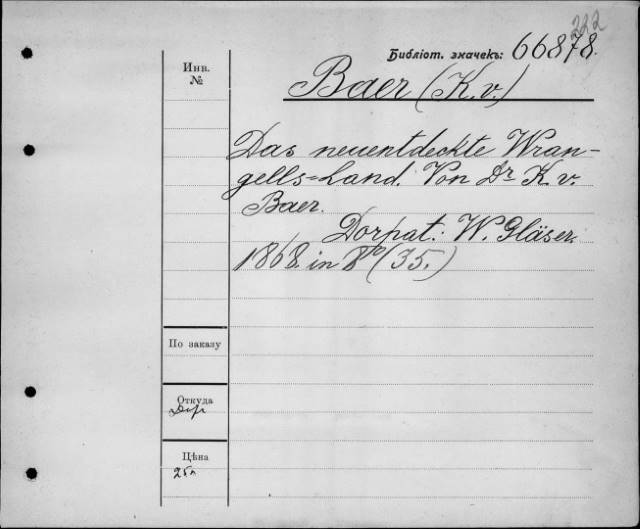 222
Библіот. значекъ: 66878.
Инв.
№
Baer (K. v.)
Das neuentdeckte Wran-
gells=Land. Von Dr K. v.
Baer.
Dorpat. W. Gläser.
1868. in 8º (35.)
По заказу
Откуда
Цѣна